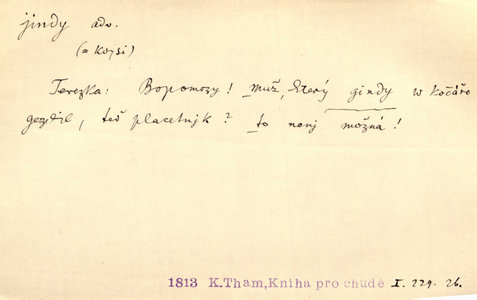 jindy adv.
(a kdysi)
Terezka: Bopomozy! muž, který gindy w kočáře
gezdil, teď placetnjk? to nenj možná!
1813 K.Thám,Kniha pro chudé I. 229. 26.